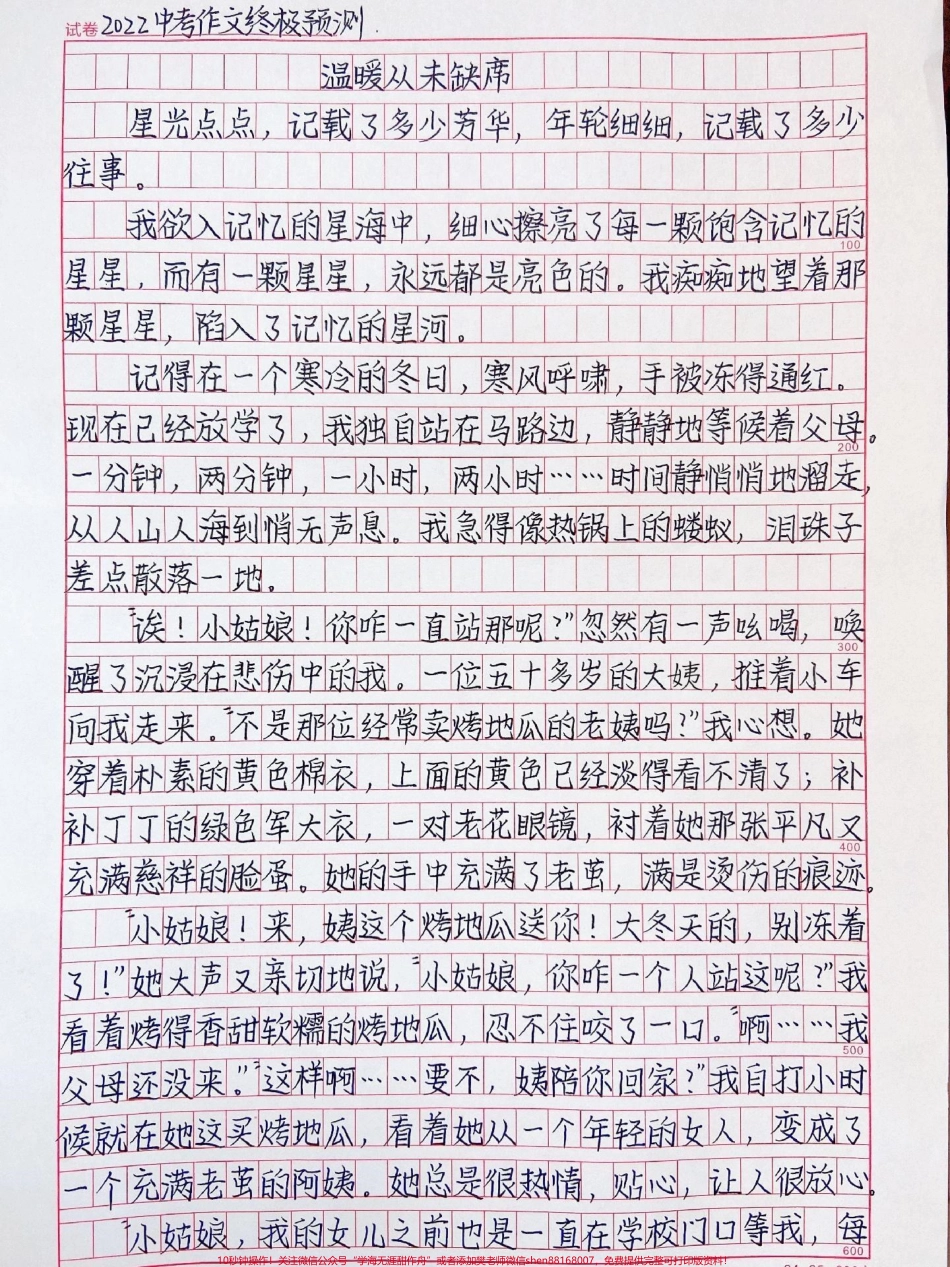 试卷 2022中考作文终极预测.
温暖从未缺席
星光点点，记载了多少芳华，年轮细细，记载了多少
往事。
我欲入记忆的星海中，细心擦亮了每一颗饱含记忆的
100
星星，而有一颗星星，永远都是亮色的。我痴痴地望着那
颗星星，陷入了记忆的星河。
记得在一个寒冷的冬日，寒风呼啸，手被冻得通红。
现在已经放学了，我独自站在马路边，静静地等候着父母。
200
一分钟，两分钟，一小时，两小时……时间静悄悄地溜走，
从人山人海到悄无声息。我急得像热锅上的蝼蚁，泪珠子
差点散落一地。
“诶！小姑娘！你咋一直站那呢？”忽然有一声吆喝，唤
300
醒了沉浸在悲伤中的我。一位五十多岁的大姨，推着小车
向我走来。“不是那位经常卖烤地瓜的老姨吗？”我心想。她
穿着朴素的黄色棉衣，上面的黄色已经淡得看不清了；补
补丁丁的绿色军大衣，一对老花眼镜，衬着她那张平凡又
400
充满慈祥的脸蛋。她的手中充满了老茧，满是烫伤的痕迹。
“小姑娘！来，姨这个烤地瓜送你！大冬天的，别冻着
了！”她大声又亲切地说，“小姑娘，你咋一个人站这呢？”我
看着烤得香甜软糯的烤地瓜，忍不住咬了一口。“啊……我
500
父母还没来。”“这样啊……要不，姨陪你回家？”我自打小时
候就在她这买烤地瓜，看着她从一个年轻的女人，变成了
一个充满老茧的阿姨。她总是很热情，贴心，让人很放心。
“小姑娘，我的女儿之前也是一直在学校门口等我，每
600
10秒钟操作！关注微信公众号“学海无涯甜作舟”或者添加樊老师微信shen88168007，免费提供完整可打印版资料！